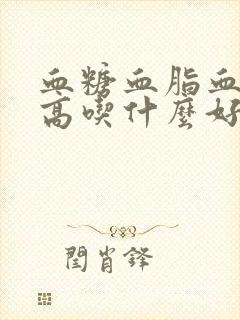 血糖血脂血
高喫什麼好
閆肖鋒